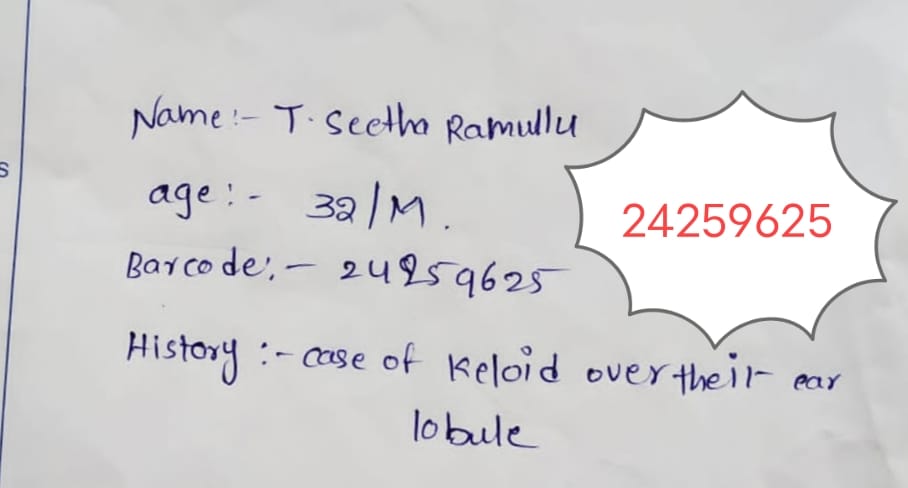 Name:- T. Seetha Ramullu
age:- 32/M.
24259625
Barcode:- 24259625
History:- case of Keloid over their ear
lobule
s